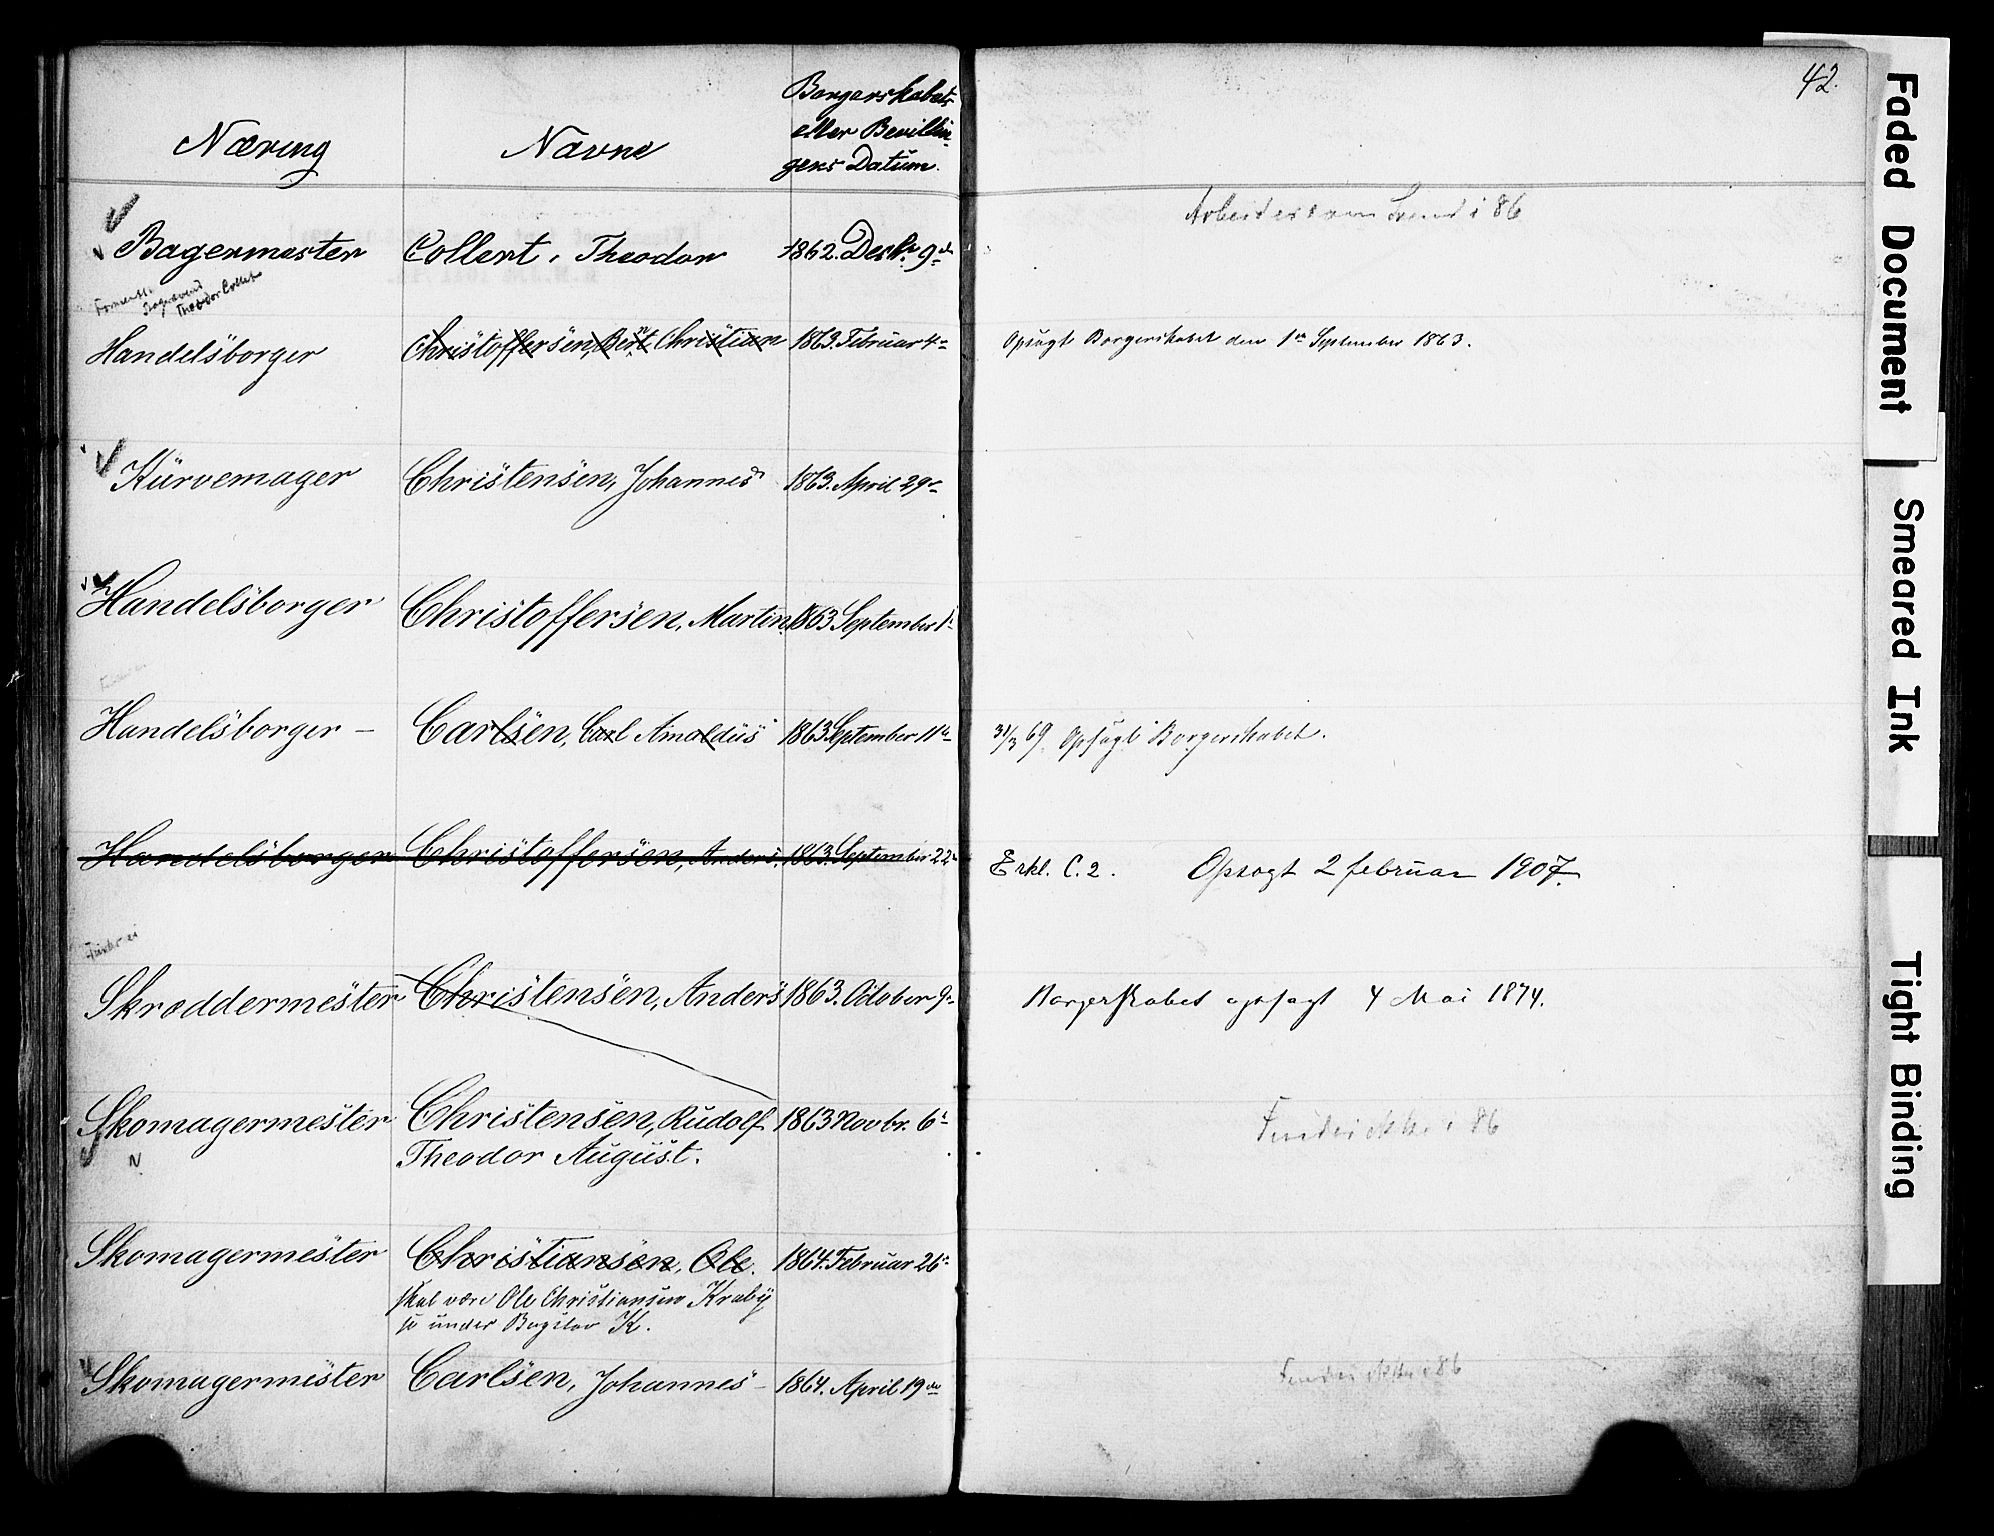 42.
Næring Navne Borgerskabets
eller Bevillin-
gens Datum.
Arbeider som Svend i 86
Bagermester Collert, Theodor 1862. Decbr. 9de
Theodor Collet
Handelsborger Christoffersen, Bernt Christian 1863. Februar 4de Opsagt Borgerskabet den 1ste September 1863.
Kurvemager Christensen, Johannes 1863. April 29de
Handelsborger Christoffersen, Martin 1863 September 1ste
Handelsborger – Carlsen, Carl Arnoldus 1863 September 11te 31/3 69. Opsagt Borgerskabet.
Handelsborger Christoffersen, Anders. 1863. September 22de Erkl. C. 2. Opsagt 2 februar 1907.
Skræddermester Christensen, Anders 1863. October 9de Borgerskabet opsagt 4 Mai 1874.
Skomagermester Christensen, Rudolf 1863 Novbr. 6te
Theodor August.
N
Findes ikke i 86
Skomagermester Christiansen, Ole. 1864. Februar 26de
skal være Ole Christiansen Kraby
se under Bogstav K.
Skomagermester Carlsen, Johannes – 1864. April 19de
Findes ikke i 86
Faded Document
Smeared Ink
Tight Binding